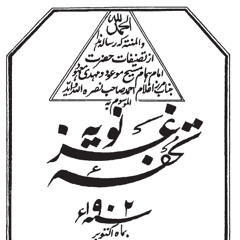 الحمد للہ
والمنۃ کہ رسالہ
از تصنیفات حضرت
امام ہمام مسیح موعود و مہدی
جناب مرزا غلام احمد صاحب نصرہ اللہ و ایدہ
الموسوم بہ
تحفہ غزنویہ
۱۹۰۲ء
بماہ اکتوبر